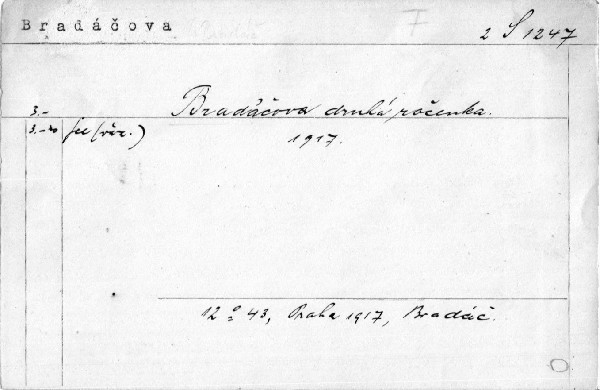 Bradáčova
2 S 1247
3.-
Bradáčova druhá ročenka.
fec (věz.)
1917.
12° 43, Praha 1917, Bradáč.